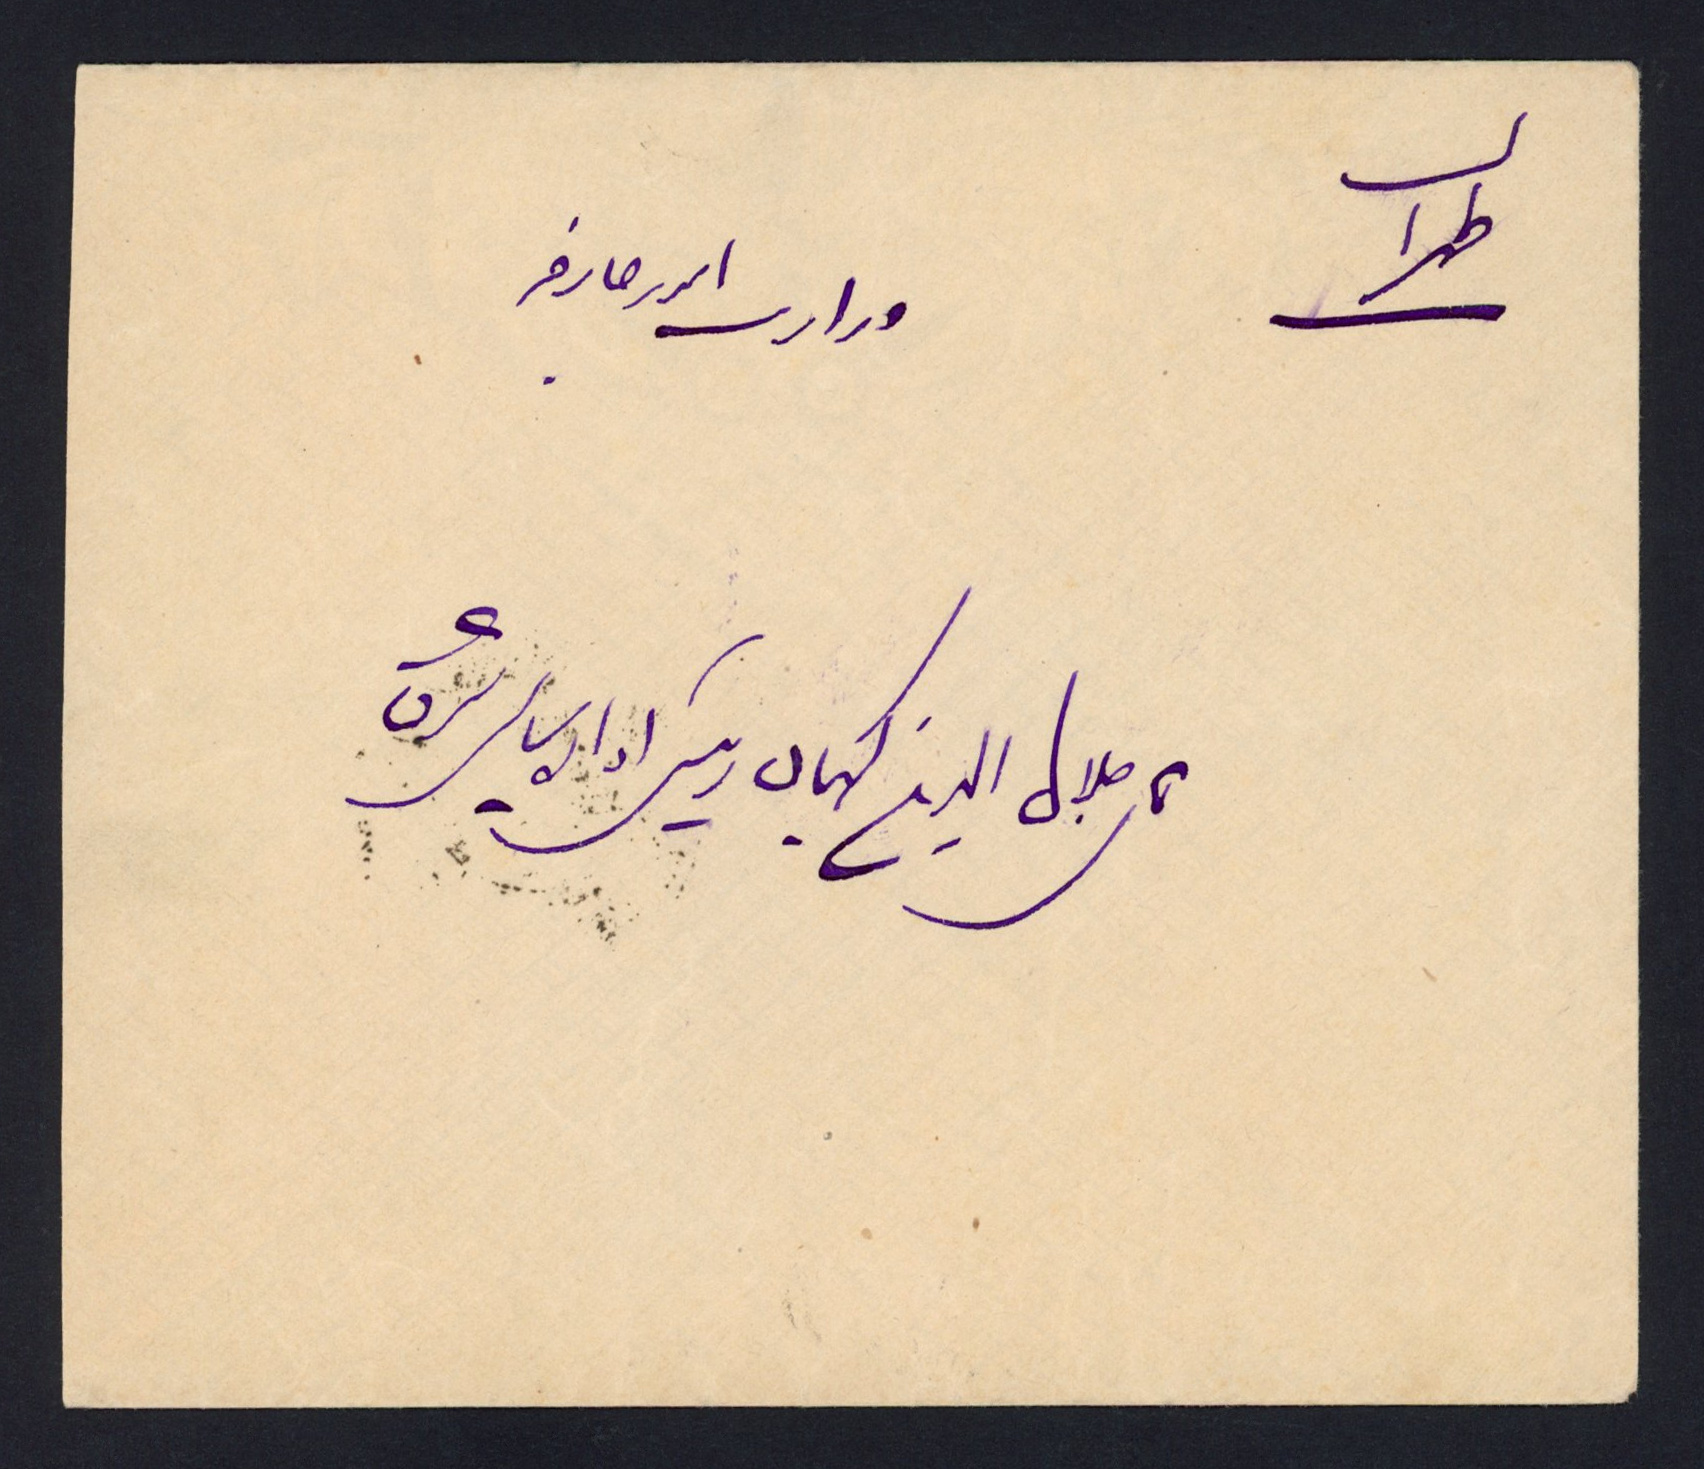 طهران
وزارت امور خارجه
جلال الدین کیهان رئیس اداره سیاسی شرق